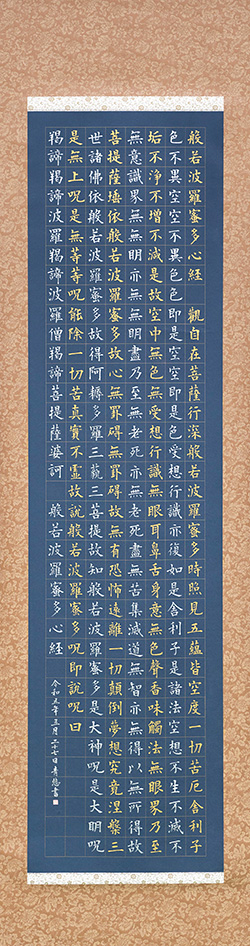 般若波羅蜜多心経　觀自在菩薩行深般若波羅蜜多時照見五蘊皆空度一切苦厄舍利子
色不異空空不異色色即是空空即是色受想行識亦復如是舍利子是諸法空想不生不滅不
垢不浄不増不減是故空中無色無受想行識無眼耳鼻舌身意無色聲香味觸法無眼界乃至
無意識界無無明亦無無明盡乃至無老死亦無老死盡無苦集滅道無智亦無得以無所得故
菩提薩埵依般若波羅蜜多故心無罣碍無罣碍故無有恐怖遠離一切顛倒夢想究竟涅槃三
世諸佛依般若波羅蜜多故得阿耨多羅三藐三菩提故知般若波羅蜜多是大神呪是大明呪
是無上呪是無等等呪能除一切苦真實不霊故説般若波羅蜜多呪即説呪曰
羯諦羯諦波羅羯諦波羅僧羯諦菩提薩婆訶　般若波羅蜜多心経
令和五年三月二十七日 書